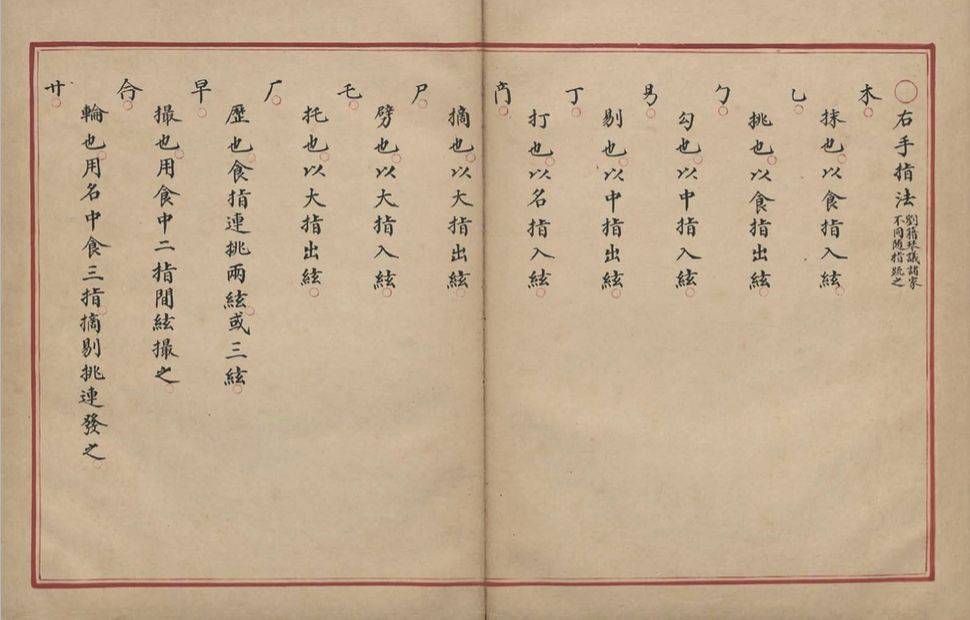 右手指法 劉籍琴議諸家不同隨指疏之
木
抹也以食指入絃
乚
挑也以食指出絃
勹
勾也以中指入絃
㫐
剔也以中指出絃
丁
打也以名指入絃
摘也以名指出絃
尸
劈也以大指入絃
乇
托也以大指出絃
厂
歷也食指連挑兩絃或三絃
早
撮也用食中二指間絃撮之
合
輪也用名中食三指摘剔挑連發之
廿